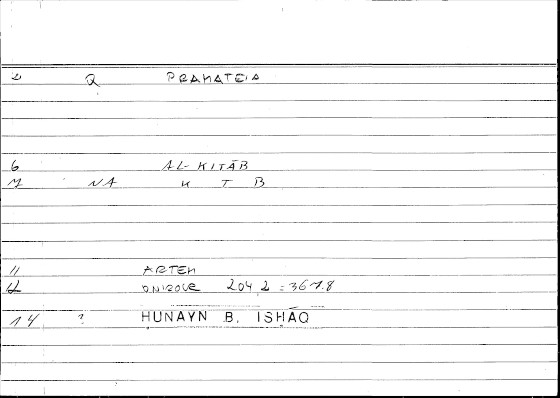 2 Q PRAMATEIA
6 AL-KITĀB
7 NA K T B
11 ARTEM
12 ONIROCR 204,2 = 367.8
14 ? HUNAYN B. ISHĀQ